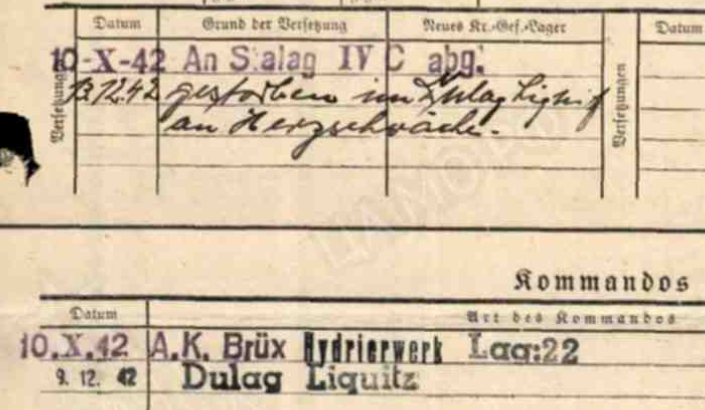 Datum Grund der Versetzung Neues Kr.-Gef.-Lager Datum
10-X-42 An Stalag IV C abg.
13.12.42 gestorben im Dulag
an Herzschwäche.
Versetzungen
Versetzungen
ЦАМО РФ
Kommandos
Datum Art des Kommandos
10.X.42 A.K. Brüx Hydrierwerk Lag:22
9. 12. 42 Dulag Liquitz